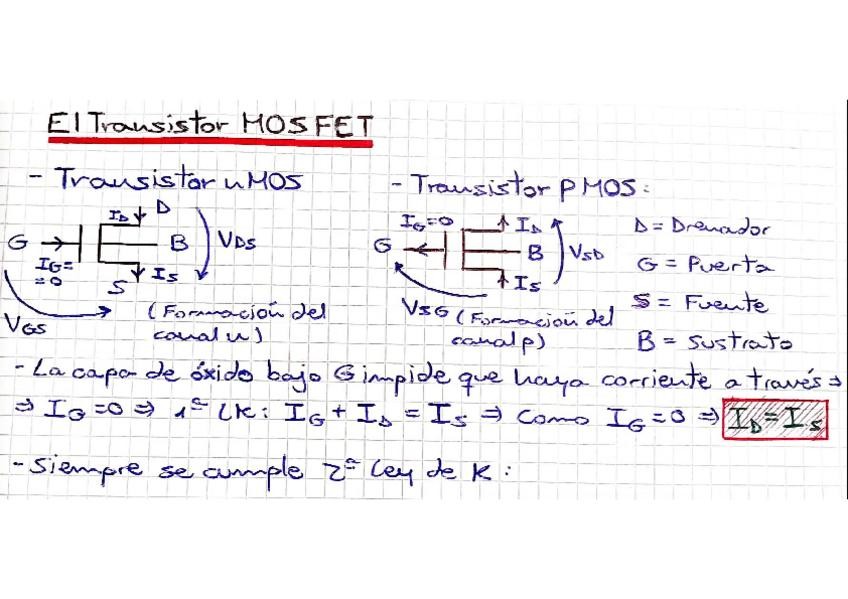 El Transistor MOSFET
- Transistor nMOS
- Transistor PMOS:
G
IG=
=0
ID
D
B
S
IS
VDS
VGS
(Formación del
canal n)
IG=0
G
ID
B
IS
VSD
VSG (Formación del
canal p)
D = Drenador
G = Puerta
S = Fuente
B = Sustrato
- La capa de óxido bajo G impide que haya corriente a través ⇒
⇒ IG=0 ⇒ 1ª LK: IG + ID = IS ⇒ Como IG=0 ⇒ ID=IS
- Siempre se cumple 2ª Ley de K: